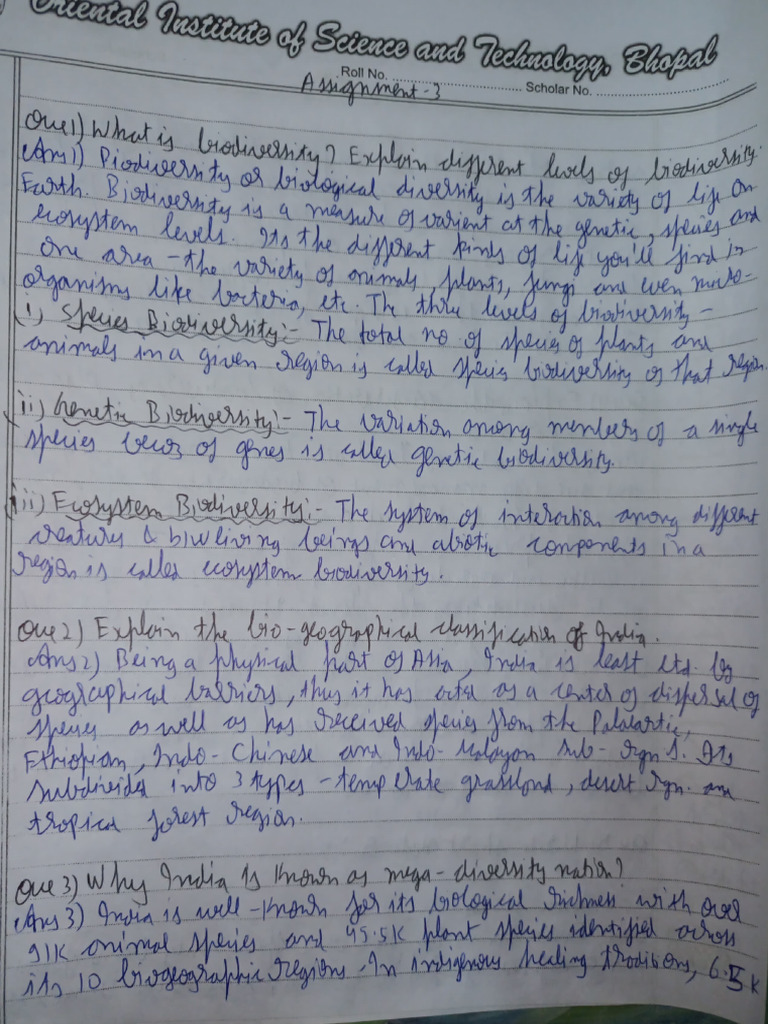 Oriental Institute of Science and Technology, Bhopal
Roll No. ........................ Scholar No. ........................
Assignment-3
Que 1) What is biodiversity? Explain different levels of biodiversity.
Ans 1) Biodiversity or biological diversity is the variety of life on
Earth. Biodiversity is a measure of varient at the genetic, species and
ecosystem levels. Its the different kinds of life you'll find in
one area - the variety of animals, plants, fungi and even micro-
organisms like bacteria, etc. The three levels of biodiversity -
i) Species Biodiversity:- The total no of species of plants and
animals in a given region is called species biodiversity of that region.
ii) Genetic Biodiversity:- The variation among members of a single
species becoz of genes is called genetic biodiversity.
iii) Ecosystem Biodiversity:- The system of interaction among different
creatures & b/w living beings and abiotic components in a
region is called ecosystem biodiversity.
Que 2) Explain the bio-geographical classification of India.
Ans 2) Being a physical part of Asia, India is least ltd. by
geographical barriers, thus it has acted as a center of dispersal of
species as well as has received species from the Palaeartic,
Ethiopian, Indo-Chinese and Indo-Malayan sub-rgn s. Its
subdivided into 3 types - temperate grassland, desert rgn. and
tropical forest region.
Que 3) Why India is known as mega-diversity nation?
Ans 3) India is well-known for its biological richness with over
91K animal species and 45.5K plant species identified across
its 10 biogeographic regions. In indigenous healing traditions, 6.5K